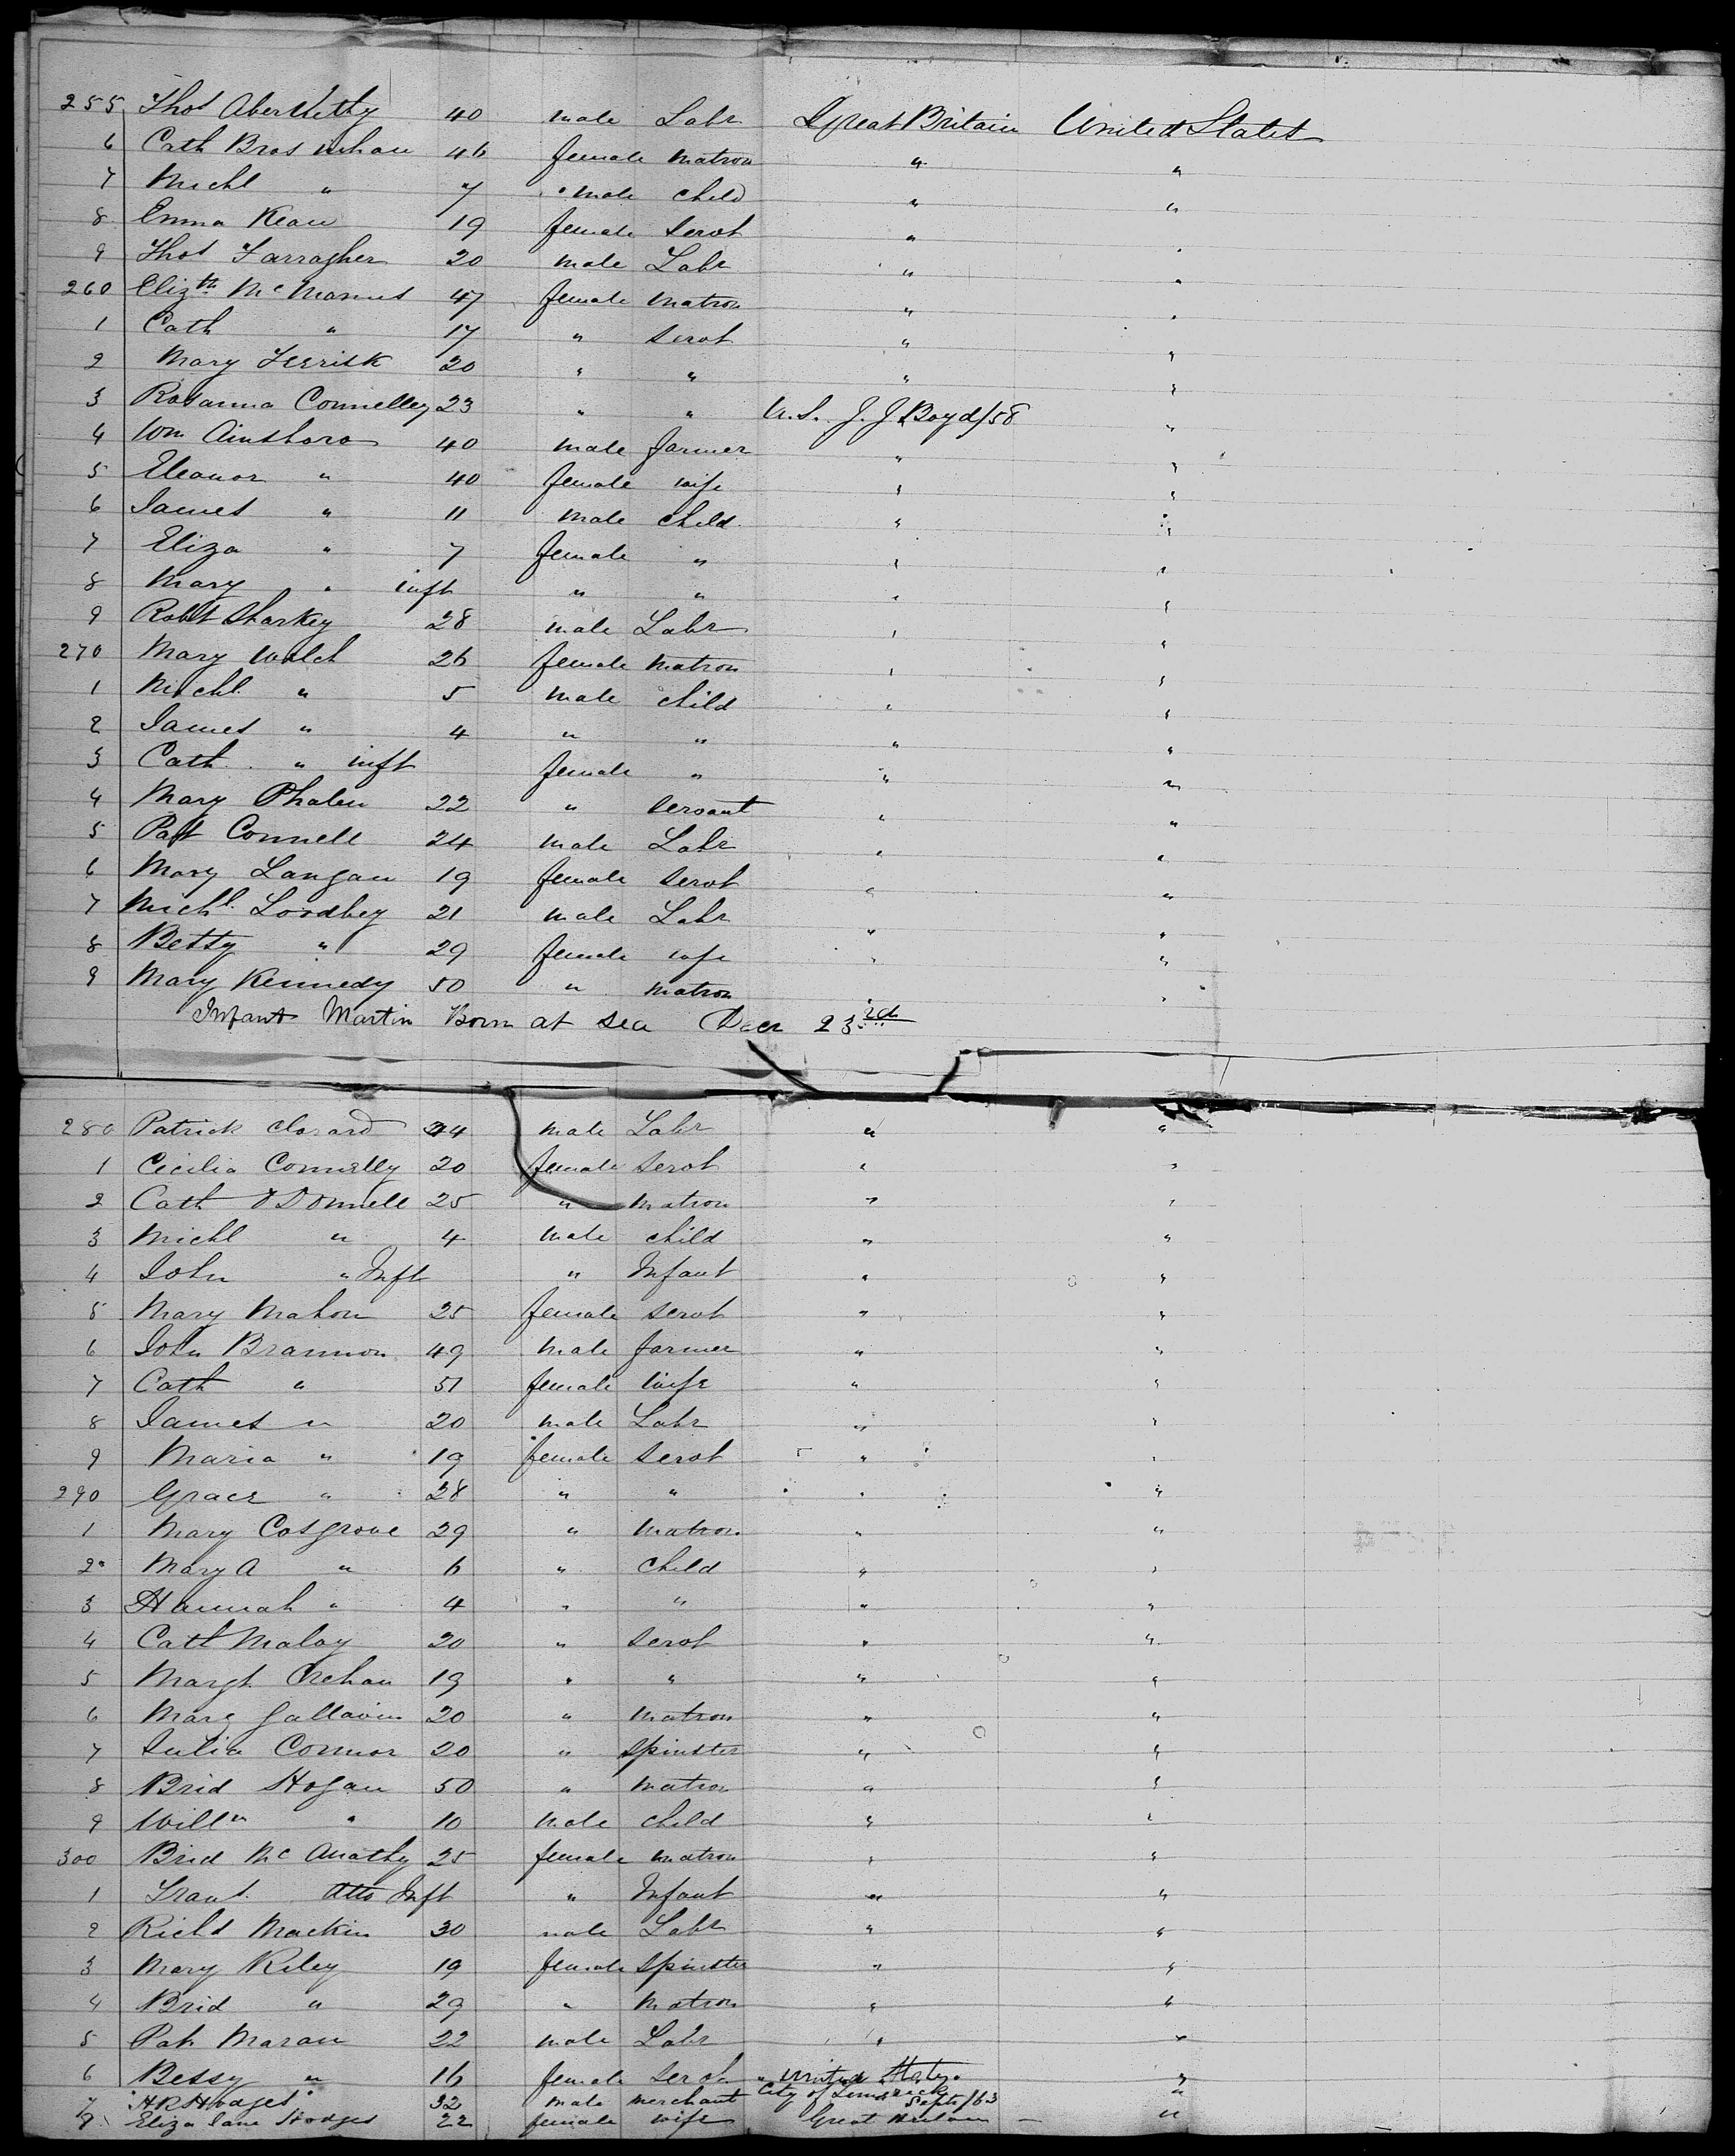 255 Thos Aberthethy 40 male Labr Great Britain United States
6 Cath Brosnihan 46 female matron " "
7 Michl " 7 male child " "
8 Emma Kean 19 female servt " "
9 Thos Farragher 20 male Labr " "
260 Elizth McManus 47 female matron " "
1 Cath " 17 " servt " "
2 Mary Leerisk 20 " " " "
3 Rosanna Connelley 23 " " U.S. J. J. Boyd/58 "
4 Wm Ainsboro 40 male farmer " "
5 Eleanor " 40 female wife " "
6 James " 11 male child " "
7 Eliza " 7 female " " "
8 Mary " inft " " " "
9 Robt Sharkey 28 male Labr " "
270 Mary Walch 26 female matron " "
1 Michl " 5 male child " "
2 James " 4 " " " "
3 Cath " inft female " " "
4 Mary Phalen 22 " servant " "
5 Pat Connell 24 male Labr " "
6 Mary Langan 19 female servt " "
7 Michl. Loodbey 21 male Labr " "
8 Betty " 29 female wife " "
9 Mary Kennedy 50 " matron " "
Infant Martin Born at sea Decr 23rd
280 Patrick 44 male Labr " "
1 Cicilia Connelly 20 female servt " "
2 Cath ODonnell 25 " matron " "
3 Michl " 4 male child " "
4 John " Inft " Infant " "
5 Mary Mahon 25 female servt " "
6 John Brannon 49 male farmer " "
7 Cath " 51 female wife " "
8 James " 20 male Labr " "
9 Maria " 19 female servt " "
290 Grace " 28 " " " "
1 Mary Cosgrove 29 " matron " "
2 Mary A " 6 " child " "
3 Hannah " 4 " " " "
4 Cath Maloy 20 " servt " "
5 Margt Crehan 19 " " " "
6 Mary Gallavin 20 " matron " "
7 Julia Connor 20 " spinster " "
8 Brid Hogan 50 " matron " "
9 Willm " 10 male child " "
300 Brid Mc Anathy 25 female matron " "
1 ditto Inft " Infant " "
2 Richd Mackin 30 male Labr " "
3 Mary Riley 19 female spinster " "
4 Brid " 29 " matron " "
5 Pat Maran 22 male Labr " "
6 Bessy " 16 female servt " United States "
7 "HR Hodges" 32 male merchant City of Limerick Sept/63 "
8 Eliza Jane Hodges 22 female wife Great Britain — "